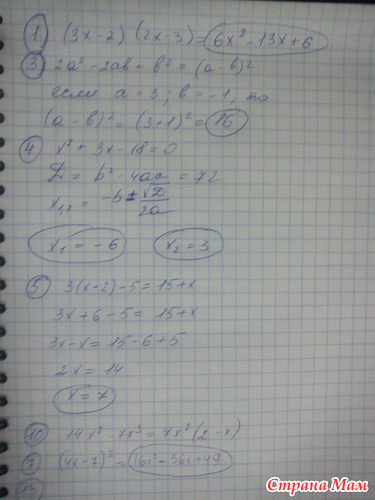 1) (3x-2)(2x-3) = 6x² - 13x + 6
3) 2a² - 2ab + b² = (a-b)²
если a = 3; b = -1, то
(a-b)² = (3+1)² = 16
4) x² + 3x - 18 = 0
D = b² - 4ac = 72
x₁,₂ = (-b ± √D)/2a
x₁ = -6 x₂ = 3
5) 3(x+2) - 5 = 15 + x
3x + 6 - 5 = 15 + x
3x - x = 15 - 6 + 5
2x = 14
x = 7
10) 14x² - 7x³ = 7x²(2-x)
7) (4x-7)² = 16x² + 56x + 49
Страна Мам